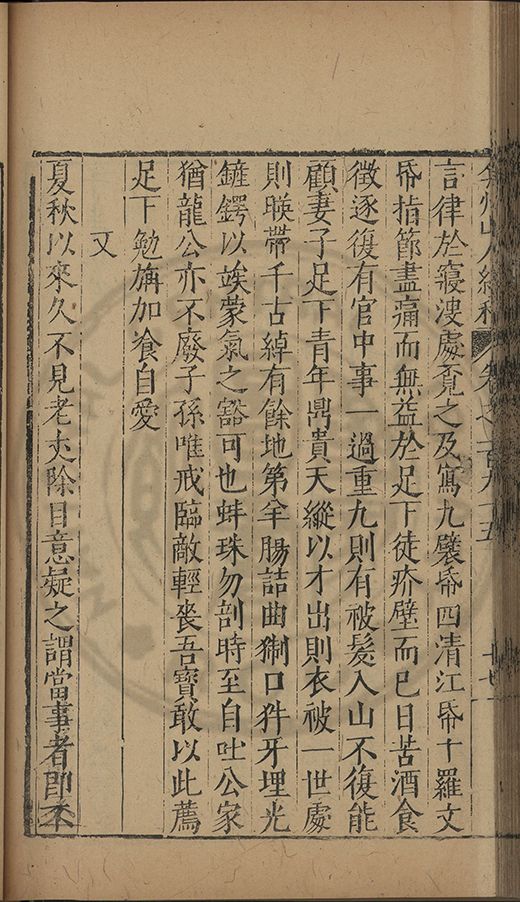 弇州山人續稿 卷之一百九十五
言律於寢溲處覓之及寫九襞帋四清江帋十羅文
帋指節盡痛而無益於足下徒疥壁而已日苦酒食
徵逐復有官中事一過重九則有被髮入山不復能
顧妻子足下青年鼎貴天縱以才出則衣被一世處
則暎帶千古綽有餘地第羊腸詰曲猘口犿牙埋光
鏟鍔以竢蒙氣之豁可也蚌珠勿剖時至自吐公家
猶龍公亦不廢子孫唯戒臨敵輕喪吾寶敢以此薦
足下勉旃加飡自愛
又
夏秋以來久不見老丈除目意疑之謂當事者卽不